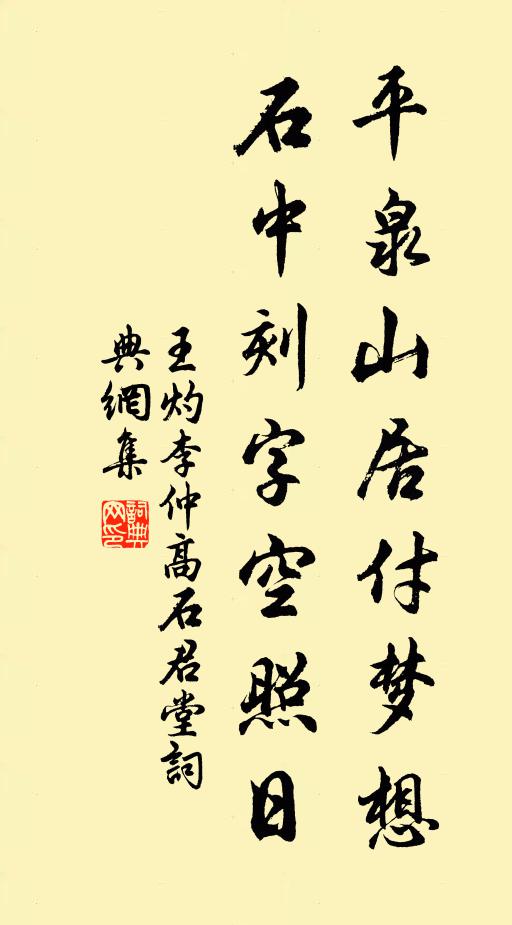 平泉山居付梦想
石中刻字空照日
王灼李仲高石君堂詞
典網集
詞典网印